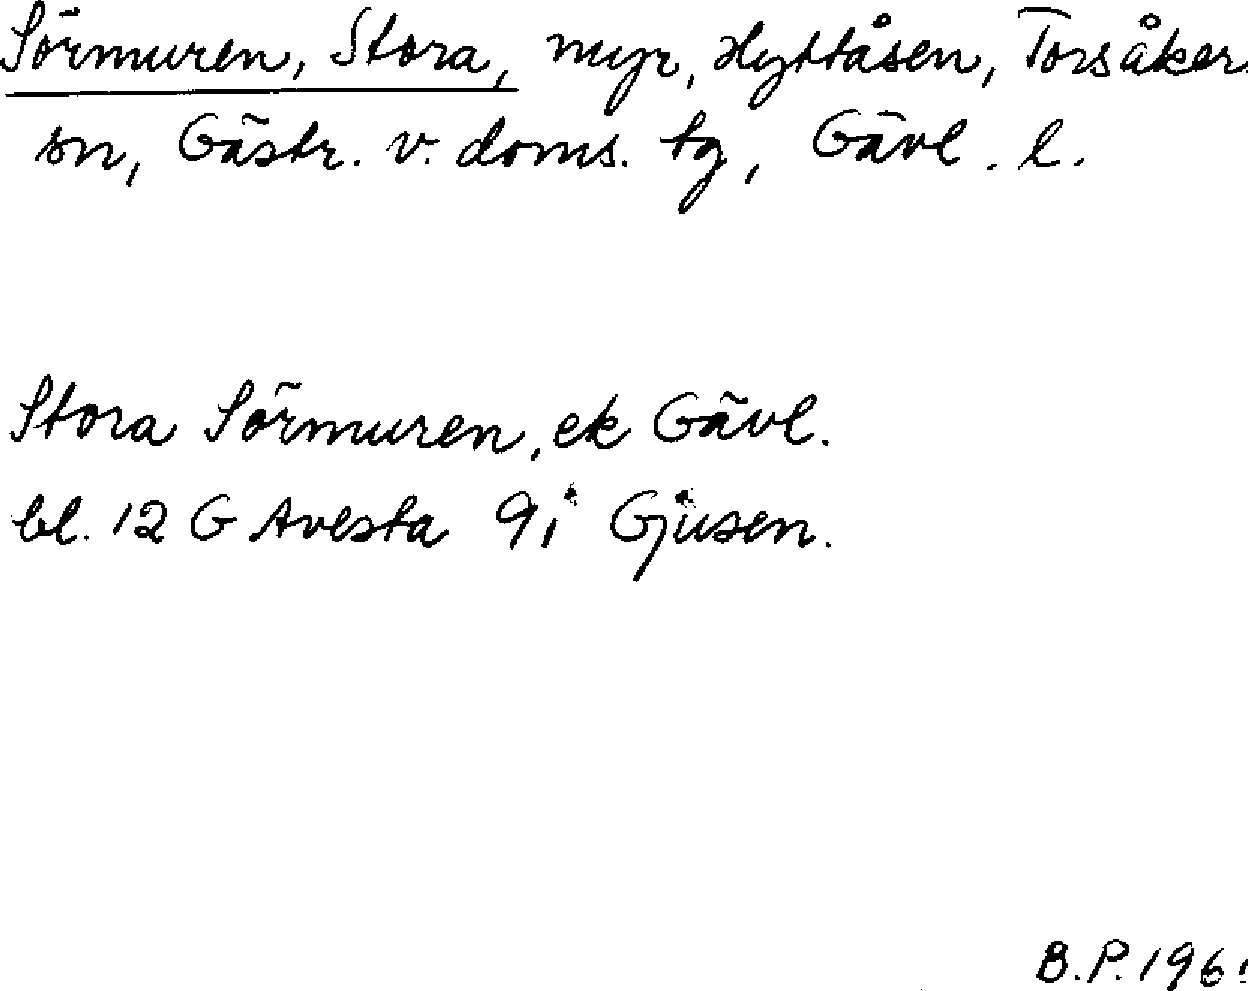 Sörmuren, Stora, myr, Hyttåsen, Torsåker
sn, Gästr. v. doms. tg, Gävl. l.
Stora Sörmuren, ek Gävl.
bl. 12 G Avesta 9i Gjusen.
B.P.